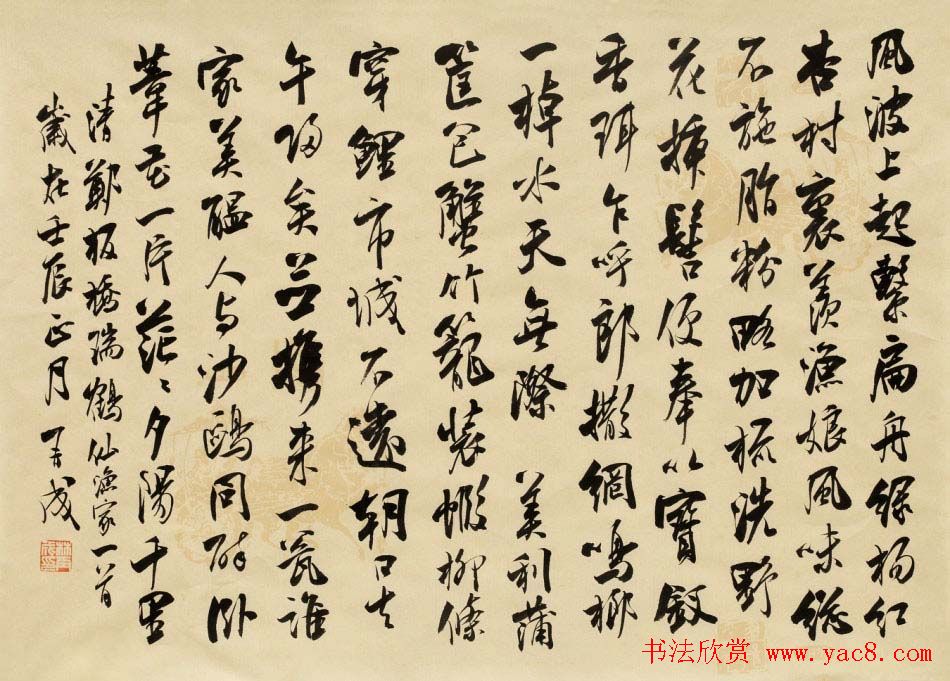 風波上起繫扁舟綠楊紅
杏村裏羨漁娘風味總
不施脂粉略加梳洗野
花插髻便奉以寶釵
香珥乍呼郎撒網鳴榔
一棹水天無際 美利蒲
筐包蟹竹籠裝蝦柳條
穿鯉市城不遠朝日去
午歸矣並攜來一瓮誰
家美醞人与沙鷗同醉臥
葦花一片茫〻夕陽千里
清鄭板橋瑞鶴仙漁家一首
歲在壬辰正月
书法欣赏 www.yac8.com